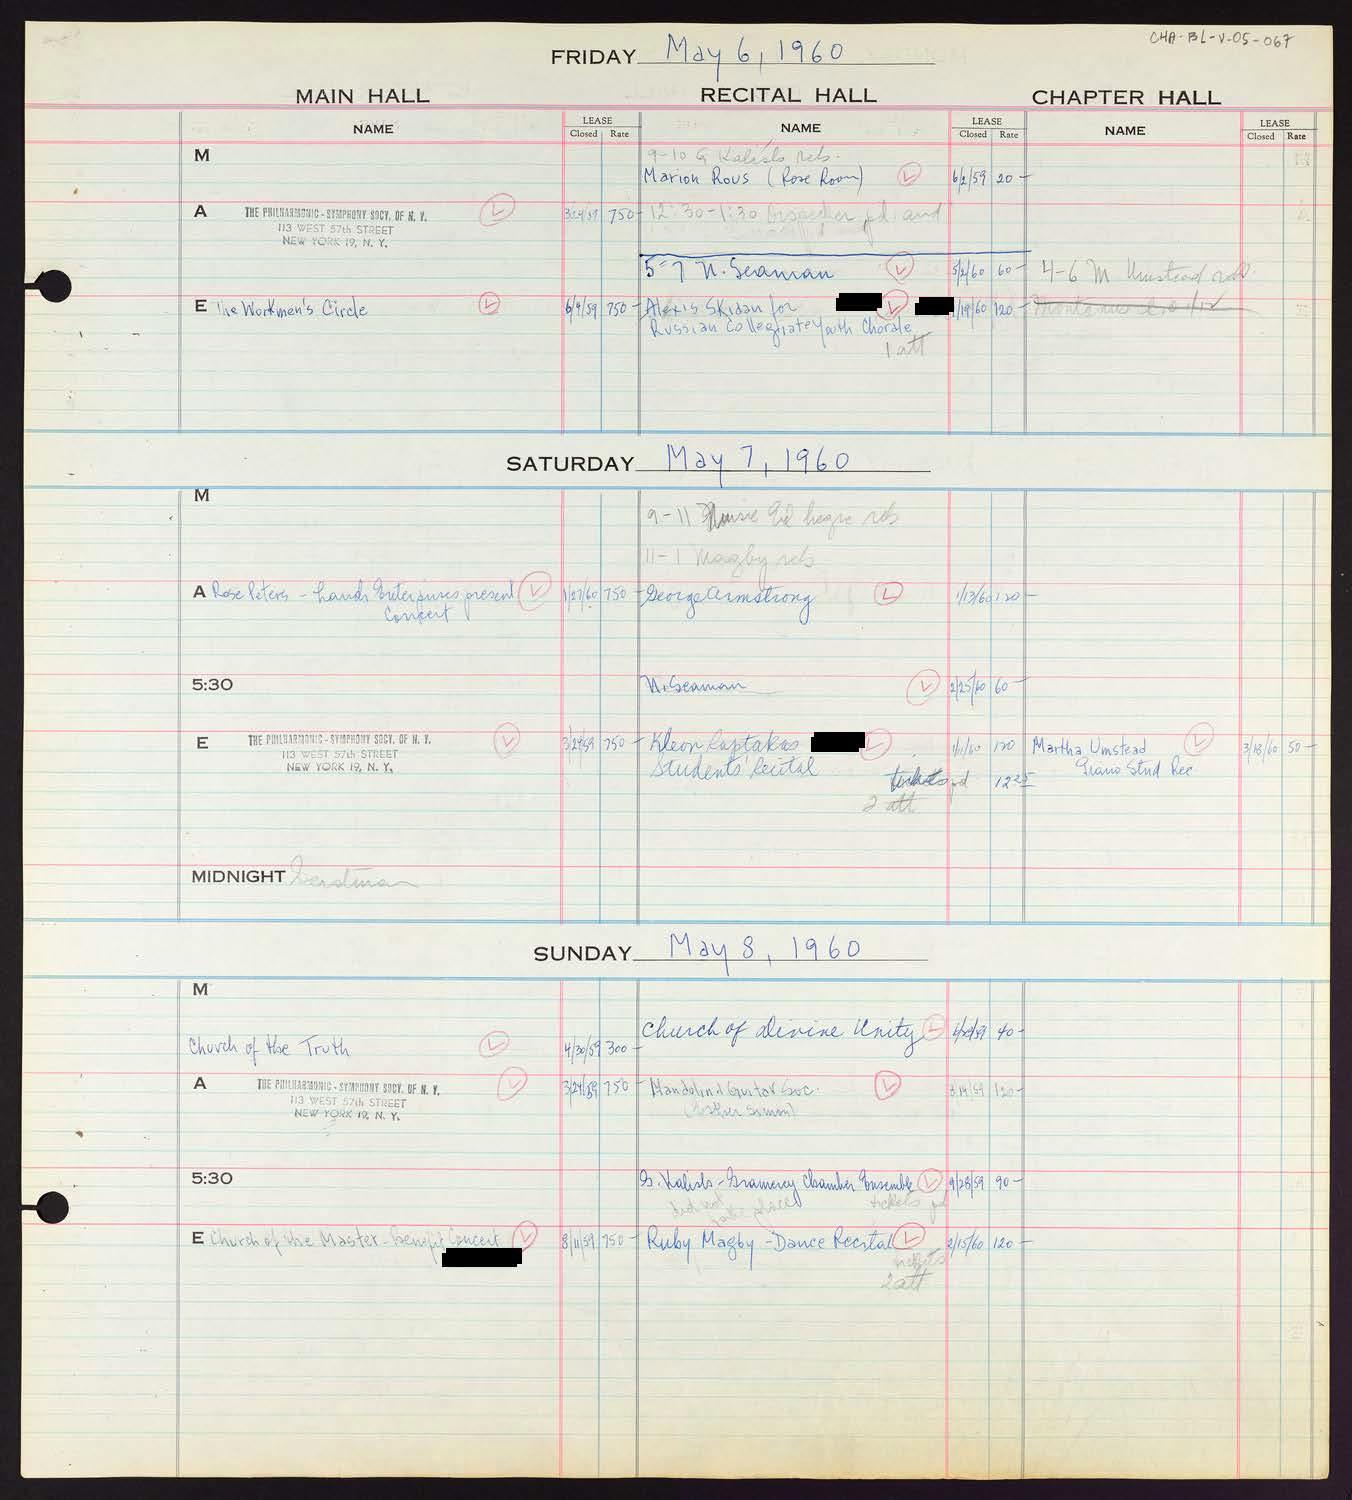 CHA-BL-V-05-067
FRIDAY May 6, 1960
MAIN HALL
RECITAL HALL
CHAPTER HALL
NAME
LEASE
Closed Rate
NAME
LEASE
Closed Rate
NAME
LEASE
Closed Rate
M
9-10 G Kalists reh.
Marion Rous (Rose Room) 6/2/59 20-
A THE PHILHARMONIC-SYMPHONY SOCY. OF N. Y. 3/24/59 750-
113 WEST 57th STREET
NEW YORK 19, N. Y.
12:30-1:30 pd. and
5-7 N. Seaman 5/2/60 60-
4-6 M Umstead reh.
E The Workmen's Circle 6/9/59 750-
Alexis Skidan for 1/19/60 120-
Russian Collegiate Youth Chorale
1 att
SATURDAY May 7, 1960
M
9-11 Music Ed league reh
11-1 Magby reh
A Rose Peters - Lands Enterprises present 1/27/60 750-
Concert
George Armstrong 1/13/60 120-
5:30
N. Seaman 2/25/60 60-
E THE PHILHARMONIC-SYMPHONY SOCY. OF N. Y. 3/24/59 750-
113 WEST 57th STREET
NEW YORK 19, N. Y.
Kleon Raptakas 1/11/60 120
Students' Recital
tickets pd 12.25
2 att
Martha Umstead 3/18/60 50-
Piano Stud Rec
MIDNIGHT Gerstman
SUNDAY May 8, 1960
M
Church of the Truth 4/30/59 300-
Church of Divine Unity 40-
A THE PHILHARMONIC-SYMPHONY SOCY. OF N. Y. 3/24/59 750-
113 WEST 57th STREET
NEW YORK 19, N. Y.
Mandolin & Guitar Soc. 120-
(Esther Simon)
5:30
G. Kalists - Gramercy Chamber Ensemble 9/28/59 90-
did not take place
tickets pd
E Church of the Master - Benefit Concert 8/11/59 750-
Ruby Magby - Dance Recital 2/15/60 120-
tickets
2 att